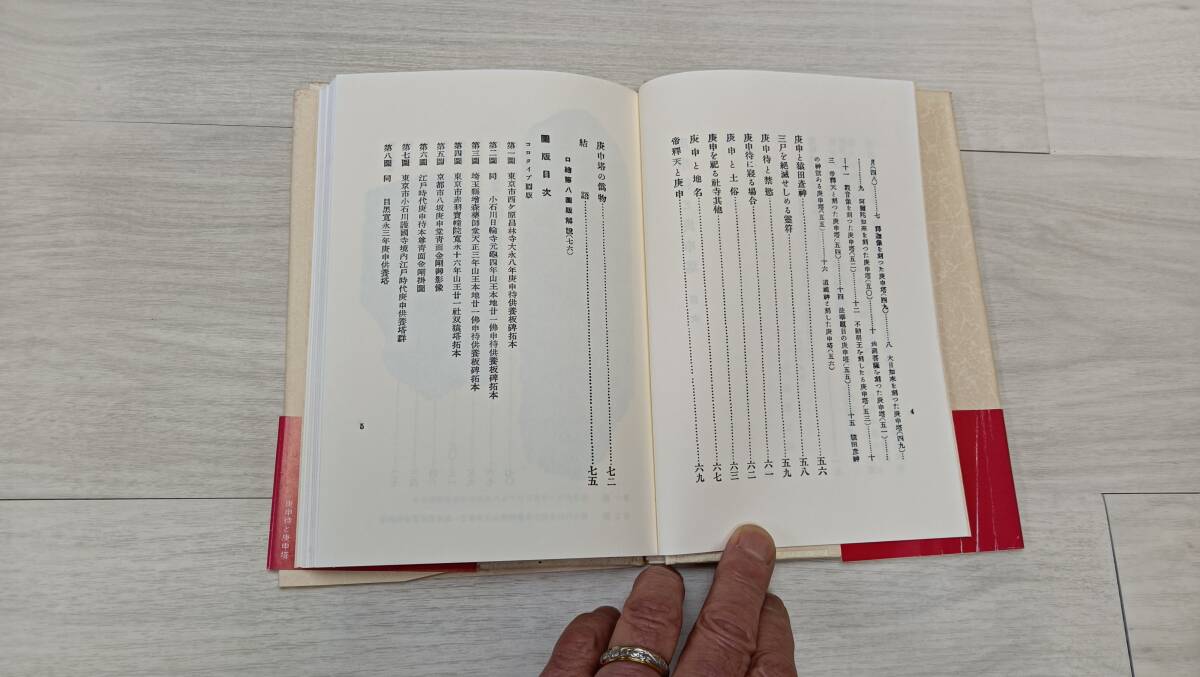 月(四八)………七 釋迦像を刻つた庚申塔(四九)………八 大日如來を刻つた庚申塔(四九)…
………九 阿彌陀如來を刻つた庚申塔(五〇)………十 地藏菩薩を刻つた庚申塔(五一)………
十一 觀音像を刻つた庚申塔(五二)………十二 不動明王を刻した庚申塔(五三)………十
三 帝釋天と刻つた庚申塔(五四)………十四 法華題目の庚申塔(五五)………十五 猿田彦神
の神號ある庚申塔(五五)………十六 道祖神と刻した庚申塔(五六)
庚申と猿田彦神………五六
三尸を絕滅せしめる靈符………五八
庚申待と禁慾………五九
庚申待に寢る場合………六一
庚申と土俗………六二
庚申を祀る社寺其他………六三
庚申と地名………六七
帝釋天と庚申………六九
4
庚申塔の僞物………七二
結語………七五
口繪第八圖版解說(七六)
圖版目次
コロタイプ圖版
第一圖 東京市西ケ原昌林寺大永八年庚申待供養板碑拓本
第二圖 同 小石川日輪寺元龜四年山王本地廿一佛申待供養板碑拓本
第三圖 埼玉縣增森藥師堂天正三年山王本地廿一佛申待供養板碑拓本
第四圖 東京市赤羽寶幢院寬永十六年山王廿一社双猿塔拓本
第五圖 京都市八坂庚申堂靑面金剛御影像
第六圖 江戶時代庚申待本尊靑面金剛掛圖
第七圖 東京市小石川護國寺境內江戶時代庚申供養塔群
第八圖 同 目黑寬永三年庚申供養塔
5
庚申待と庚申塔